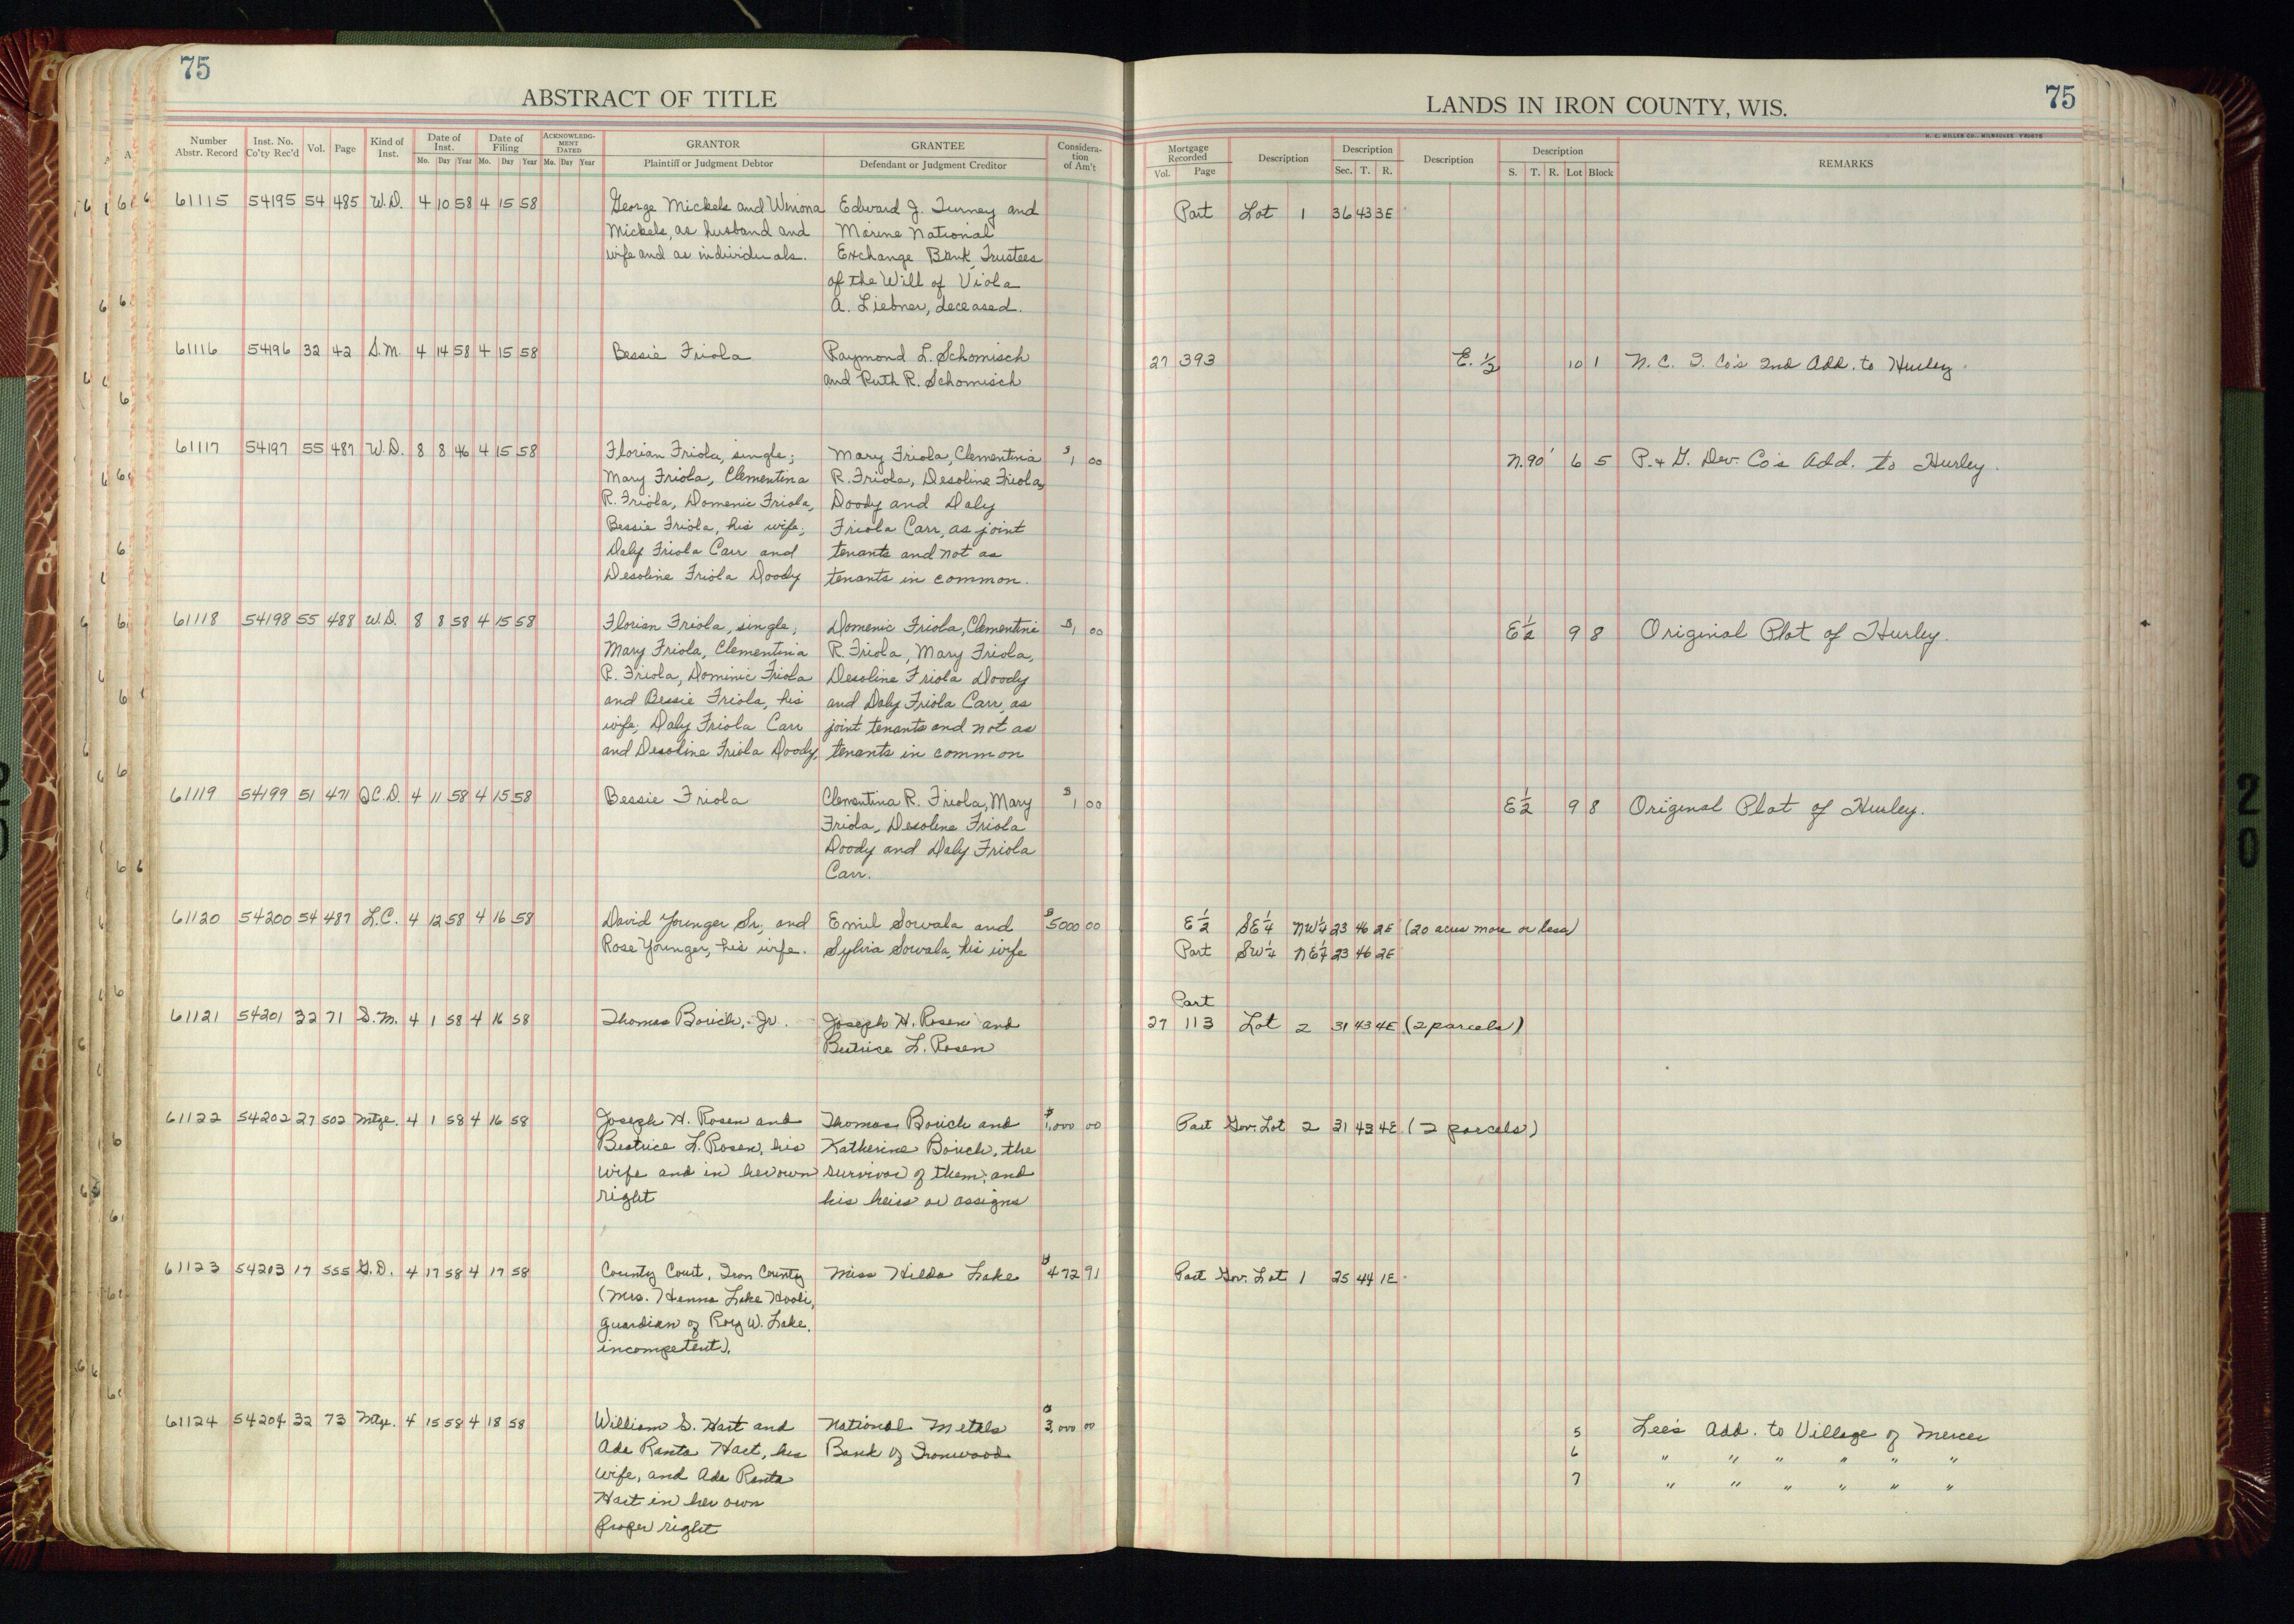 75
ABSTRACT OF TITLE
Number Abstr. Record Inst. No. Co'ty Rec'd Vol. Page Kind of Inst. Date of Inst. Mo. Day Year Date of Filing Mo. Day Year ACKNOWLEDGMENT DATED Mo. Day Year GRANTOR Plaintiff or Judgment Debtor GRANTEE Defendant or Judgment Creditor Consideration of Am't
61115 54195 54 485 W.D. 4 10 58 4 15 58 George Mickels and Winona Edward J. Turney and
Mickels, as husband and Marine National
wife and as individuals. Exchange Bank, Trustees
of the Will of Viola
A. Liebner, deceased.
61116 54196 32 42 S.M. 4 14 58 4 15 58 Bessie Friola Raymond L. Schomisch
and Ruth R. Schomisch
61117 54197 55 487 W.D. 8 8 46 4 15 58 Florian Friola, single; Mary Friola, Clementina $1 00
Mary Friola, Clementina R. Friola, Desoline Friola
R. Friola, Domenic Friola, Doody and Daly
Bessie Friola, his wife; Friola Carr, as joint
Daly Friola Carr and tenants and not as
Desoline Friola Doody tenants in common.
61118 54198 55 488 W.D. 8 8 58 4 15 58 Florian Friola, single; Domenic Friola, Clementine $1 00
Mary Friola, Clementina R. Friola, Mary Friola,
R. Friola, Dominic Friola Desoline Friola Doody
and Bessie Friola, his and Daly Friola Carr, as
wife; Daly Friola Carr joint tenants and not as
and Desoline Friola Doody, tenants in common
61119 54199 51 471 Q.C.D. 4 11 58 4 15 58 Bessie Friola Clementina R. Friola, Mary $1 00
Friola, Desoline Friola
Doody and Daly Friola
Carr.
61120 54200 54 487 L.C. 4 12 58 4 16 58 David Younger Sr., and Emil Sorvala and $5000 00
Rose Younger, his wife. Sylvia Sorvala, his wife
61121 54201 32 71 S.M. 4 1 58 4 16 58 Thomas Borich, Jr. Joseph H. Rosen and
Beatrice L. Rosen
61122 54202 27 502 Mtge. 4 1 58 4 16 58 Joseph H. Rosen and Thomas Borich and $1,000 00
Beatrice L. Rosen, his Katherine Borich, the
wife and in her own survivor of them, and
right his heirs or assigns
61123 54203 17 555 G.D. 4 17 58 4 17 58 County Court, Iron County Miss Hilda Lake $472 91
(Mrs. Henna Lake Hooli,
guardian of Roy W. Lake,
incompetent).
61124 54204 32 73 Mtge. 4 15 58 4 18 58 William S. Hart and National Metals $3,000 00
Ada Ranta Hart, his Bank of Ironwood
wife, and Ada Ranta
Hart in her own
proper right
LANDS IN IRON COUNTY, WIS.
75
H. C. MILLER CO., MILWAUKEE
Mortgage Recorded Vol. Page Description Description Sec. T. R. Description Description S. T. R. Lot Block REMARKS
Part Lot 1 36 43 3E
27 393 E. 1/2 10 1 N. C. I. Co's 2nd Add. to Hurley
N. 90' 6 5 P. & G. Dev. Co's Add. to Hurley.
E 1/2 9 8 Original Plat of Hurley.
E 1/2 9 8 Original Plat of Hurley.
E 1/2 SE 1/4 NW 1/4 23 46 2E (20 acres more or less)
Part SW 1/4 NE 1/4 23 46 2E
Part
27 113 Lot 2 31 43 4E (2 parcels)
Part Gov. Lot 2 31 43 4E (2 parcels)
Part Gov. Lot 1 25 44 1E
5 Lee's Add. to Village of Mercer
6 " " " " " "
7 " " " " " "